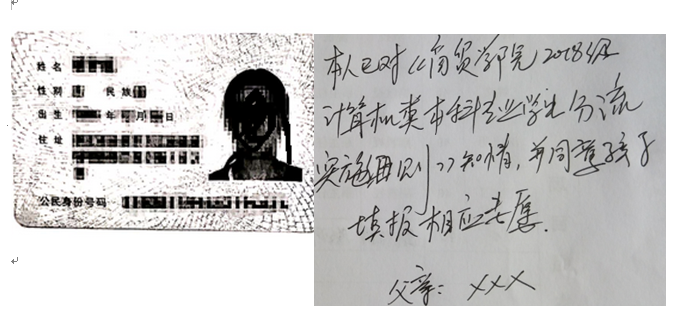 姓名
性别 民族
出生 年 月 日
住址
公民身份号码
本人已对《商贸学院2018级
计算机类本科专业学生分流
实施细则》知情，并同意孩子
填报相应志愿.
父亲：XXX